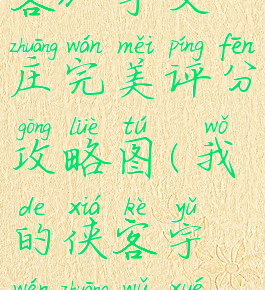 zhuāng wán měi píng fēn
庄完美评分
gōng lüè tú wǒ
攻略图(我
de xiá kè yǔ
的侠客宇